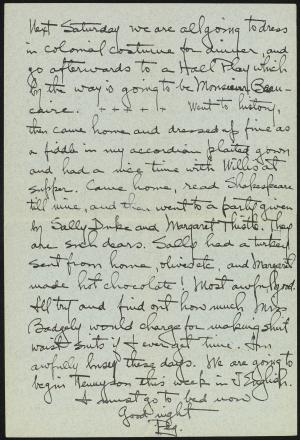 Next Saturday we are all going to dress
in colonial costume for dinner, and
go afterwards to a Hall Play which
by the way is going to be Monsieur Beau-
caire. + + + + + Went to history,
then came home and dressed up fine as
a fiddle in my accordion plaited gown
and had a nice time with Willis at
supper. Came home, read Shakespeare
till nine, and then went to a party given
by Sally Duke and Margaret Thistle. They
are such dears. Sally had a turkey
sent from home, olives etc, and Margaret
made hot chocolate! Most awfully good.
I'll try and find out how much Mrs
Badgely would charge for making shirt
waist suits if I ever get time. I'm
awfully busy these days. We are going to
begin Tennyson this week in J English.
I must go to bed now
Good night
Peg.